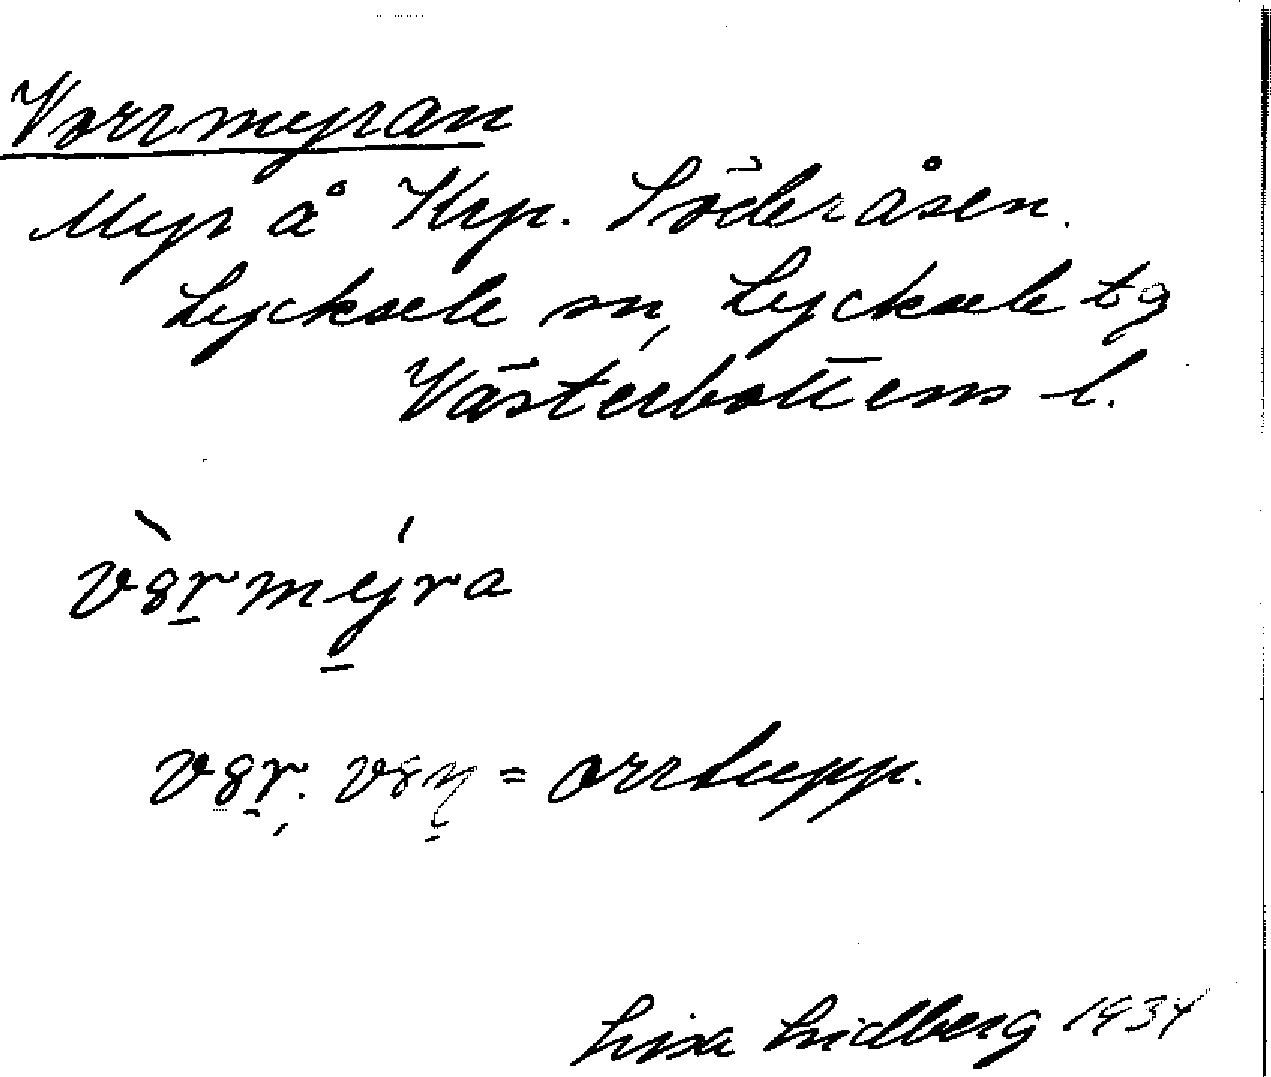 Vorrmyran
Myr å Krp. Söderåsen.
Lycksele sn, Lycksele tg
Västerbottens l.
v8r̲mýra
v8r̲, v8n̲ = orrtupp.
Lisa Lidberg 1934